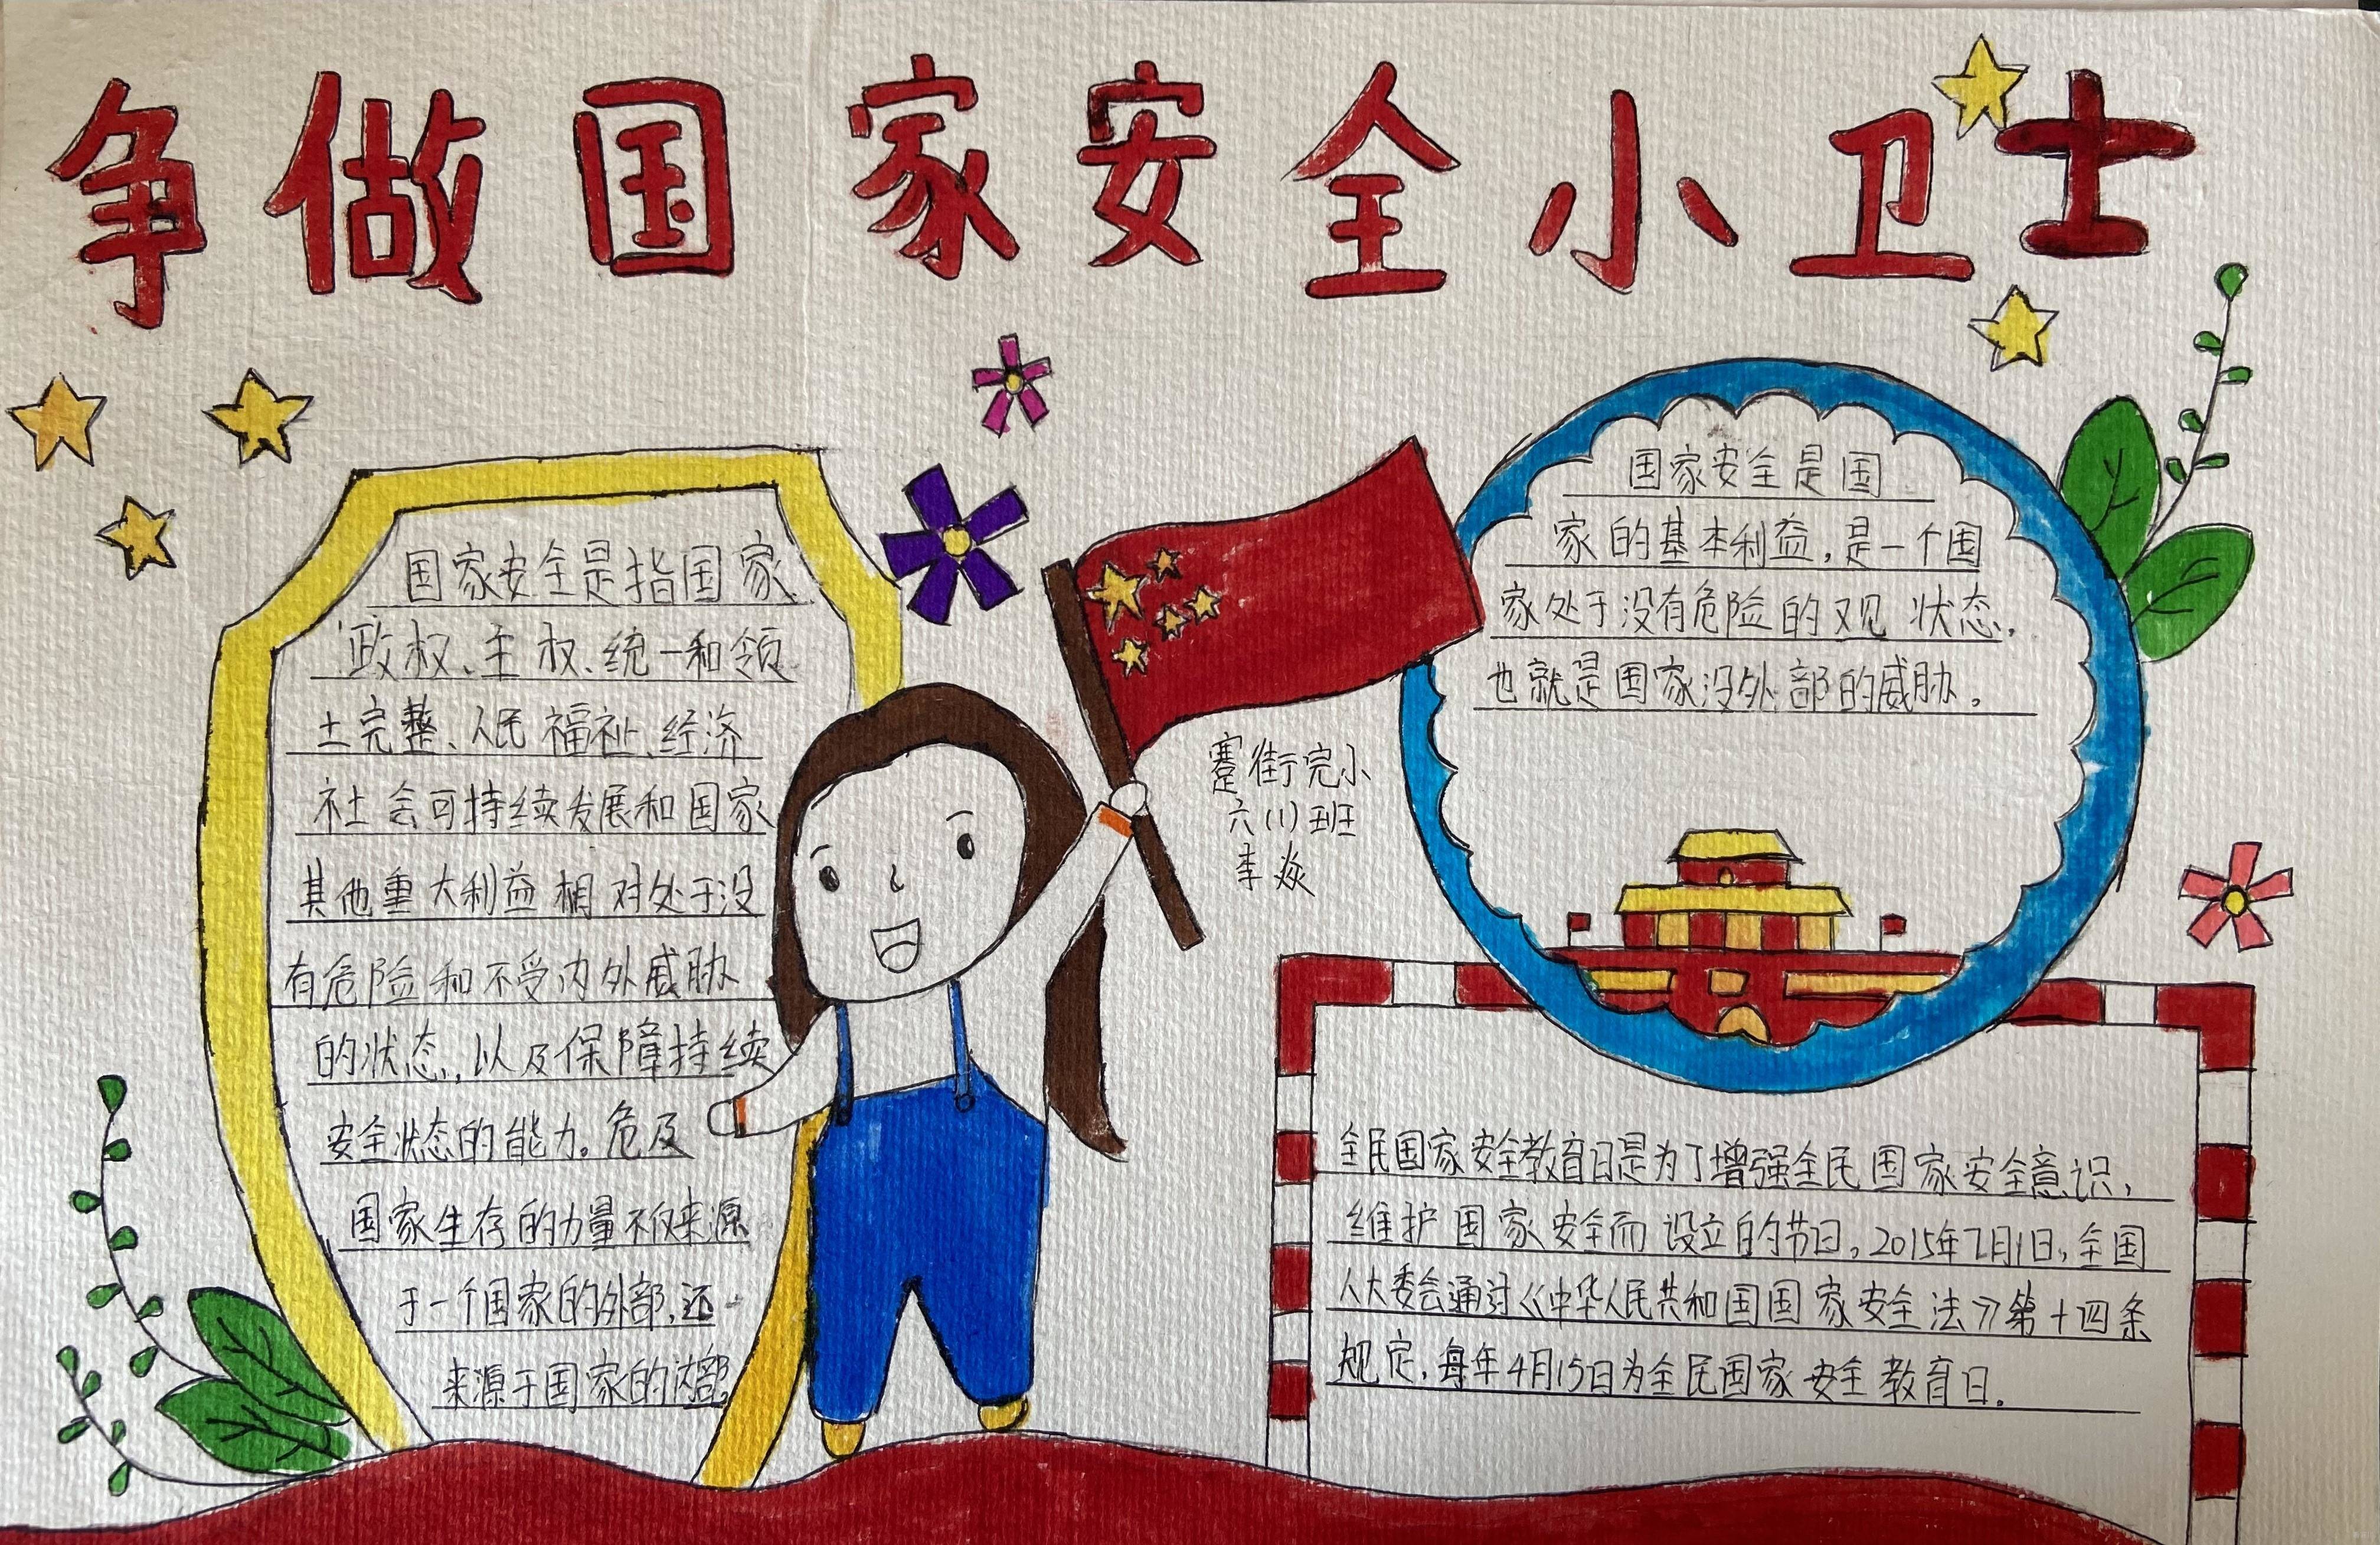 争做国家安全小卫士
国家安全是指国家
政权、主权、统一和领
土完整、人民福祉、经济
社会可持续发展和国家
其他重大利益相对处于没
有危险和不受内外威胁
的状态，以及保障持续
安全状态的能力。危及
国家生存的力量不仅来源
于一个国家的外部，还
来源于国家的内部。
蹇街完小
六(1)班
李焱
国家安全是国
家的基本利益，是一个国
家处于没有危险的观状态，
也就是国家没外部的威胁。
全民国家安全教育日是为了增强全民国家安全意识，
维护国家安全而设立的节日。2015年7月1日，全国
人大委会通过《中华人民共和国国家安全法》第十四条
规定，每年4月15日为全民国家安全教育日。